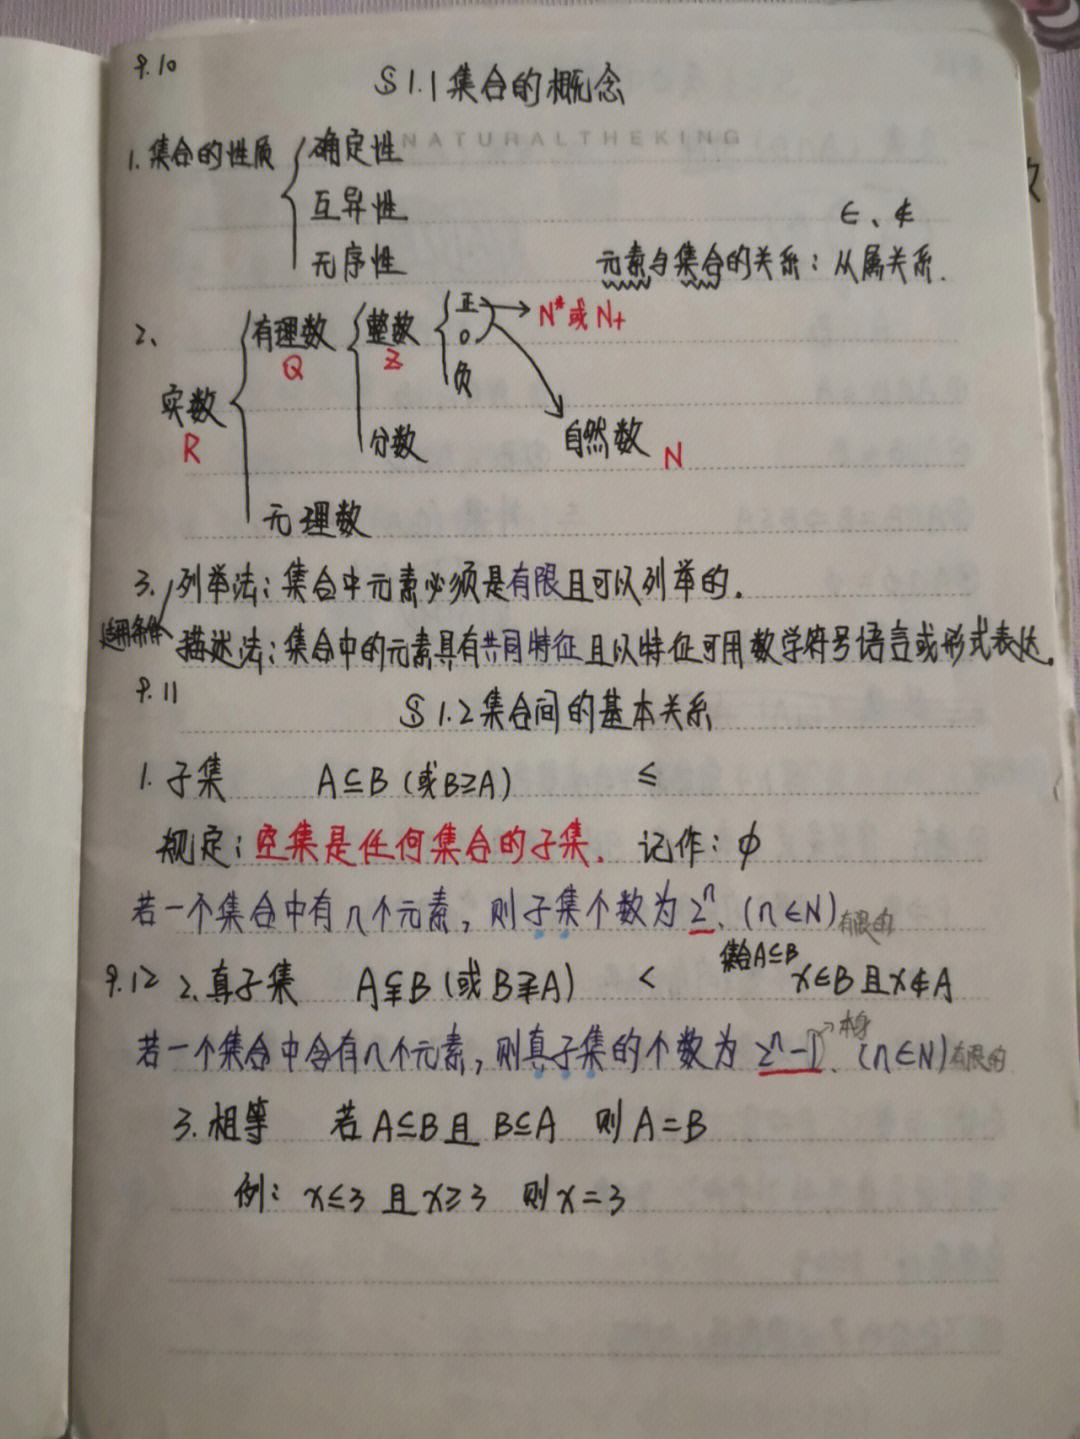 9.10
§1.1集合的概念
NATURALTHEKING
1.集合的性质 确定性
互异性
∈、∉
无序性 元素与集合的关系：从属关系.
2、 有理数 整数 正 N*或N+
Q Z 0
负
实数
R 分数 自然数 N
无理数
3. 列举法：集合中元素必须是有限且可以列举的.
适用条件
描述法：集合中的元素具有共同特征且以特征可用数学符号语言或形式表达.
9.11
§1.2集合间的基本关系
1.子集 A⊆B（或B⊇A） ≤
规定：空集是任何集合的子集. 记作：ϕ
若一个集合中有n个元素，则子集个数为2ⁿ.（n∈N）有限的
9.12 2.真子集 A⫋B（或B⫌A） < 集合A⊆B x∈B且x∉A
若一个集合中含有n个元素，则真子集的个数为2ⁿ-1.→本身（n∈N）有限的
3.相等 若A⊆B且B⊆A 则A=B
例：x≤3且x≥3 则x=3